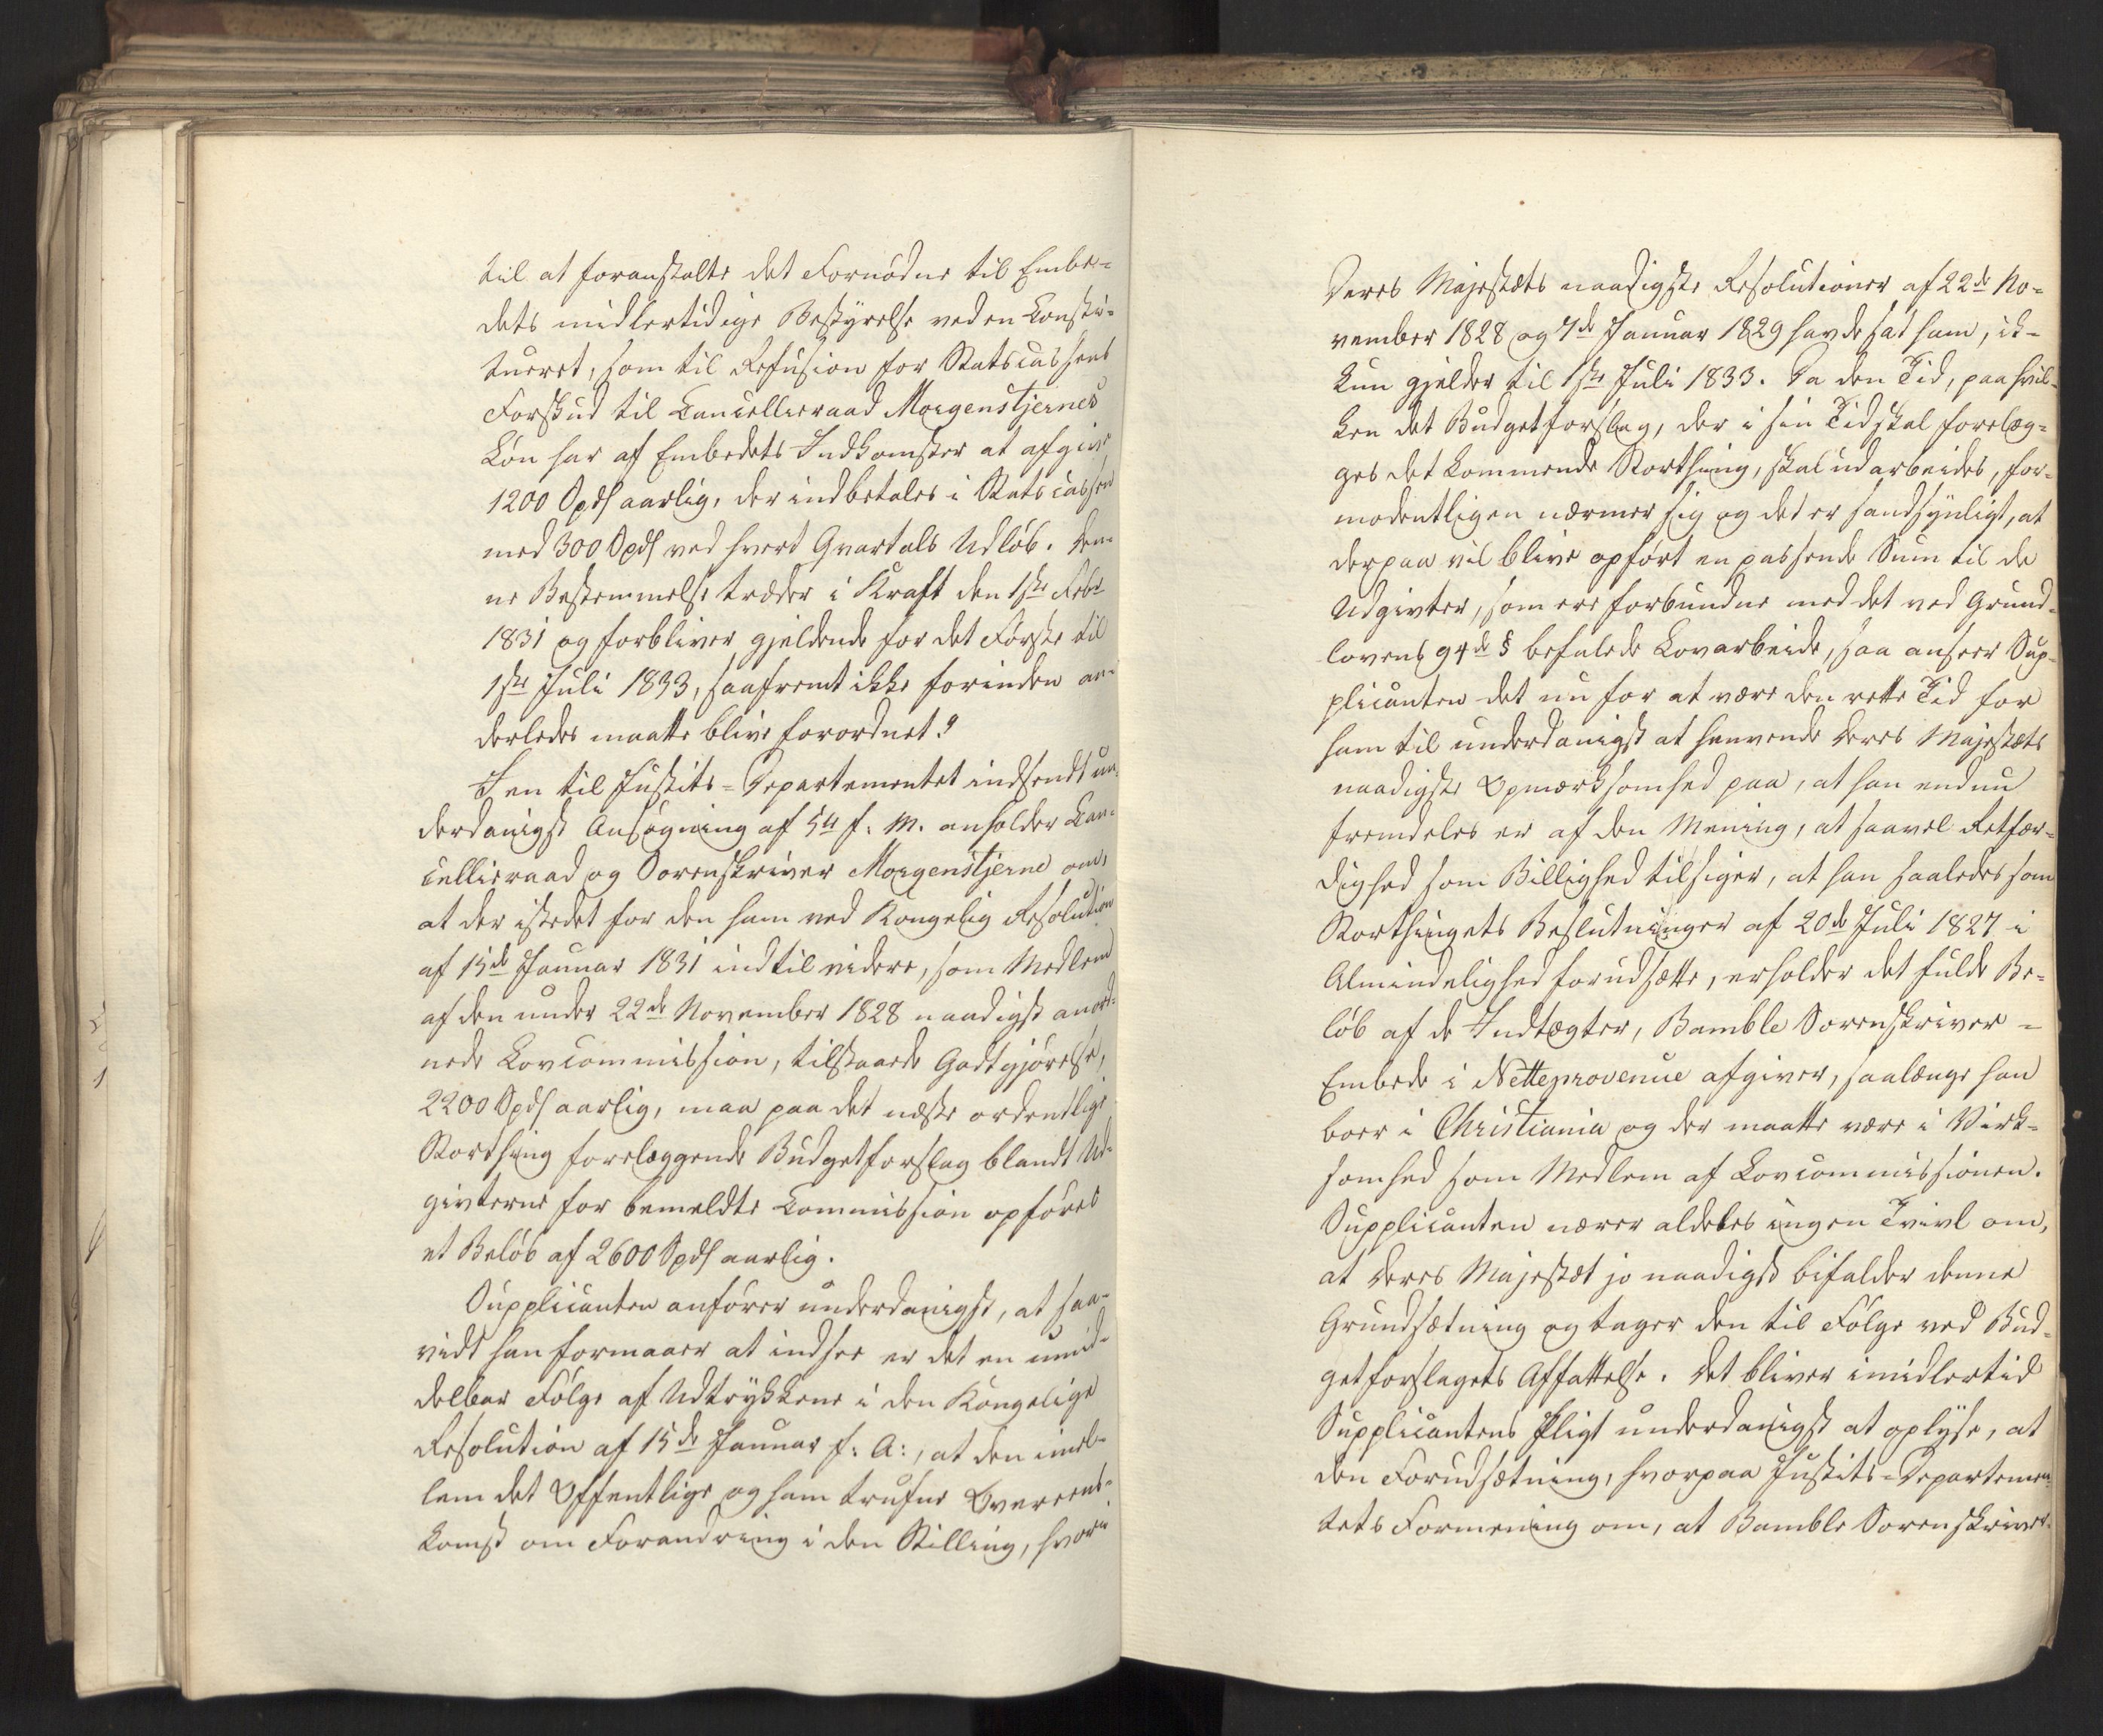 til at foranstalte det Fornødne til Embe-
dets midlertidige Bestyrelse ved en Consti-
tueret, som til Refusion for Statscassens
Forskud til Cancellieraad Morgenstjernes
Løn har af Embedets Indkomster at afgive
1200 Spds aarlig, der indbetales i Statscassen
med 300 Spds ved hvert Qvartals Udløb. Den-
ne Bestemmelse træder i Kraft den 1ste Febr
1831 og forbliver gjeldende for det Første til
1ste Juli 1833, saafremt ikke forinden an-
derledes maatte blive forordnet."
I en til Justits-Departementet indsendt un-
derdanigst Ansøgning af 5te f. M. anholder Can-
cellieraad og Sorenskriver Morgenstjerne om,
at der istedet for den ham ved Kongelig Resolution
af 15de Januar 1831 indtil videre, som Medlem
af den under 22de November 1828 naadigst anord-
nede Lovcommission, tilstaaede Godtgjørelse,
2200 Spds aarlig, maa paa det næste ordentlige
Storthing forelæggende Budgetforslag blandt Ud-
givterne for bemeldte Commission opføres
et Beløb af 2600 Spds aarlig.
Supplicanten anfører underdanigst, at saa-
vidt han formaaer at indsee er det en umid-
delbar Følge af Udtrykkene i den Kongelige
Resolution af 15de Januar f: A:, at den imel-
lem det Offentlige og ham trufne Overeens-
komst om Forandring i den Stilling, hvori
Deres Majestæts naadigste Resolutioner af 22de No-
vember 1828 og 7de Januar 1829 havde sat ham, ik-
kun gjelder til 1ste Juli 1833. Da den Tid, paa hvil-
ken det Budgetforslag, der i sin Tid skal forelæg-
ges det kommende Storthing, skal udarbeides, for-
modentligen nærmer sig og det er sandsynligt, at
derpaa vil blive opført en passende Sum til de
Udgivter, som ere forbundne med det ved Grund-
lovens 94de § befalede Lovarbeide, saa anseer Sup-
plicanten det nu for at være den rette Tid for
ham til underdanigst at henvende Deres Majestæts
naadigste Opmærksomhed paa, at han endnu
fremdeles er af den Mening, at saavel Retfær-
dighed som Billighed tilsiger, at han saaledes som
Storthingets Beslutninger af 20de Juli 1827 i
Almindelighed forudsætte, erholder det fulde Be-
løb af de Indtægter, Bamble Sorenskriver-
Embede i Nettoprovenue afgiver, saalænge han
boer i Christiania og der maatte være i Virk-
somhed som Medlem af Lovcommissionen.
Supplicanten nærer aldeles ingen Tvivl om,
at Deres Majestæt jo naadigst bifalder denne
Grundsætning og tager den til Følge ved Bud-
getforslagets Affattelse. Det bliver imidlertid
Supplicantens Pligt underdanigst at oplyse, at
den Forudsætning, hvorpaa Justits-Departemen-
tets Formening om, at Bamble Sorenskriver-